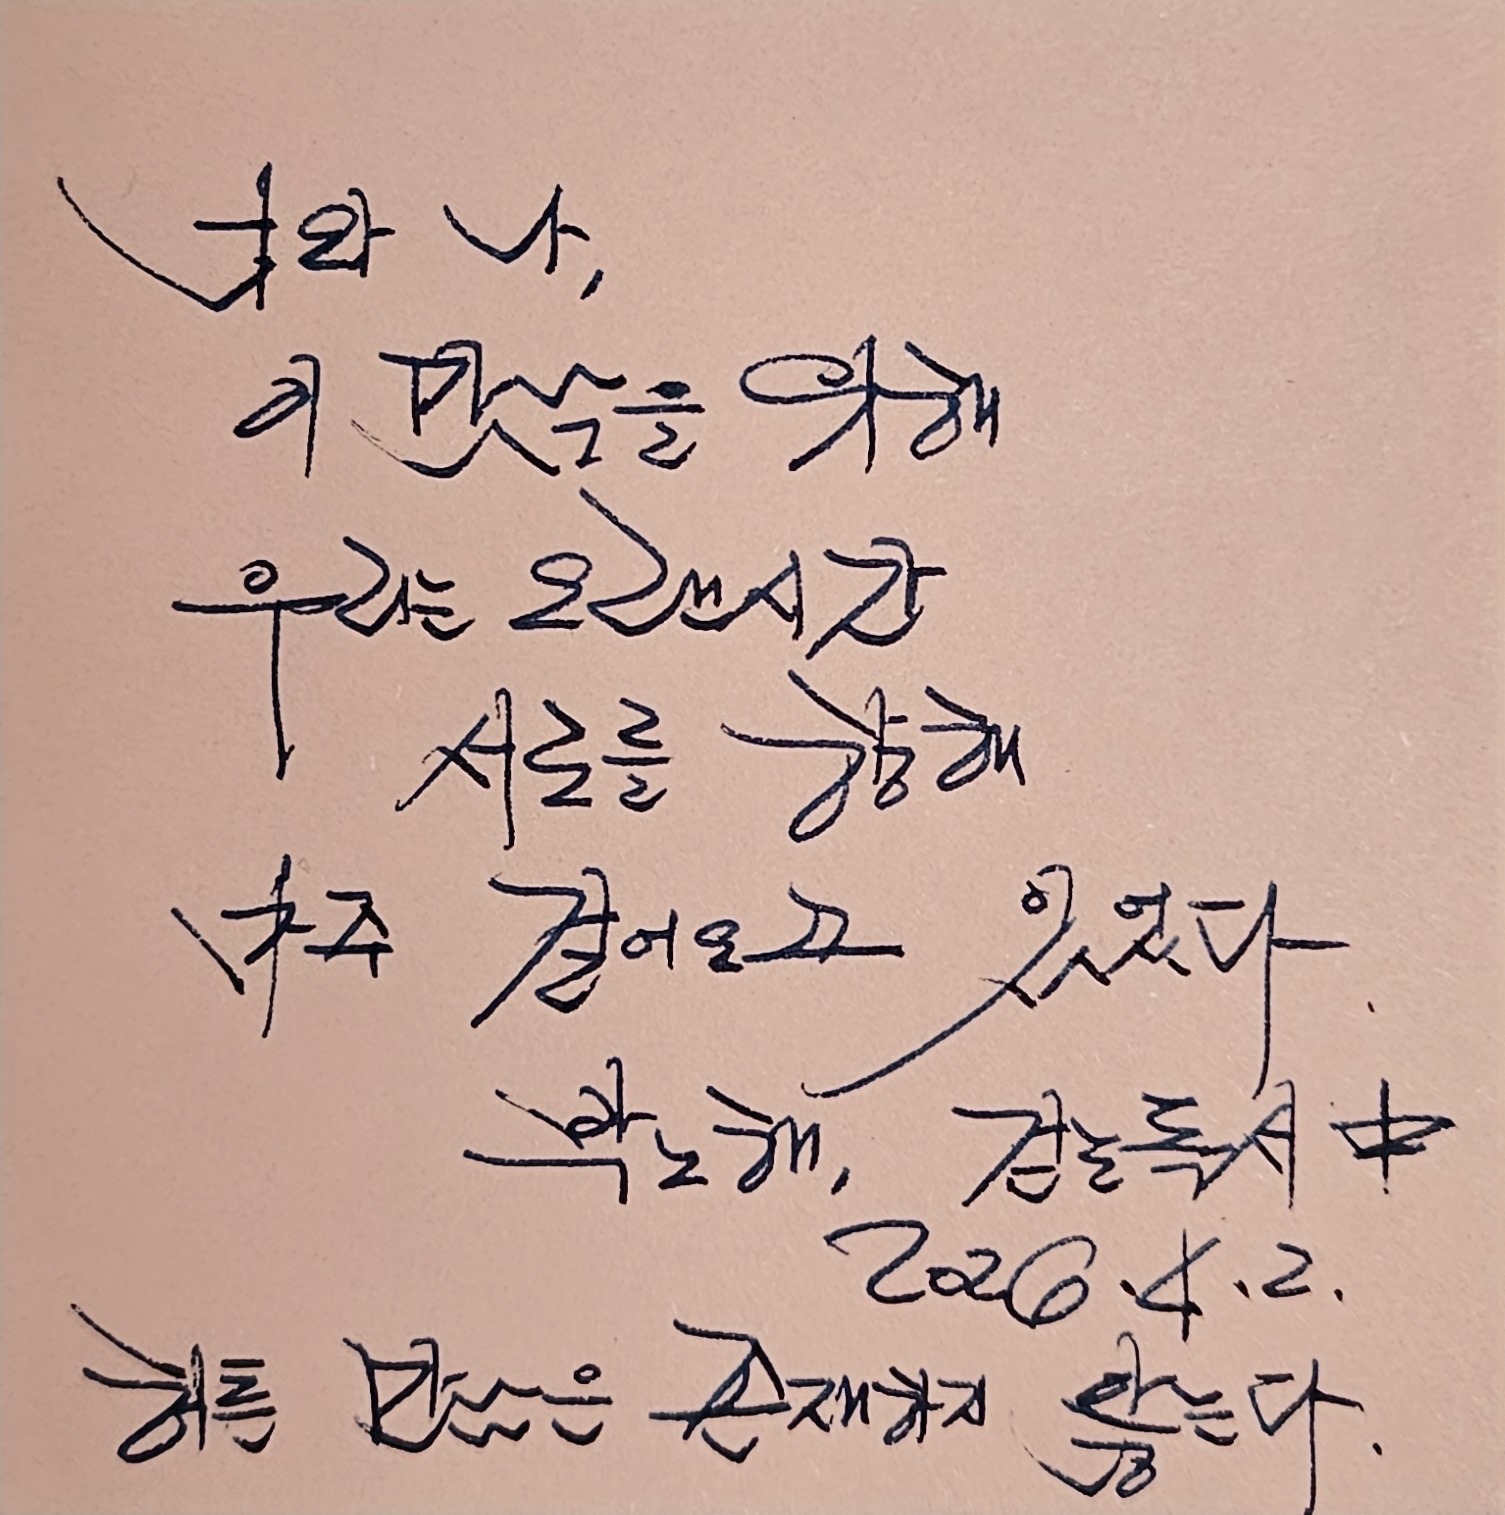 너와 나,
이 만남을 위해
우리는 오랜시간
서로를 향해
마주 걸어오고 있었다.
박노해, 걷는독서 中
2026.4.2.
허튼 만남은 존재하지 않는다.